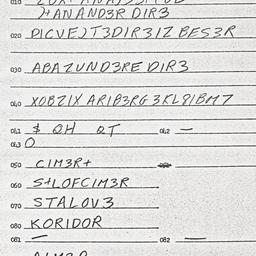 010
HANAND3R DIR3
020 PICVEJT3DIR3IZ BES3R
030 ABAZUND3RE DIR3
040 XOBZIX ARIB3RG3KL8IBM7
041 $ QH QT 042 —
043 O
050 CIM3R+
060 S+LOFCIM3R
070 STALOV3
080 KORIDOR
081 — 082 —